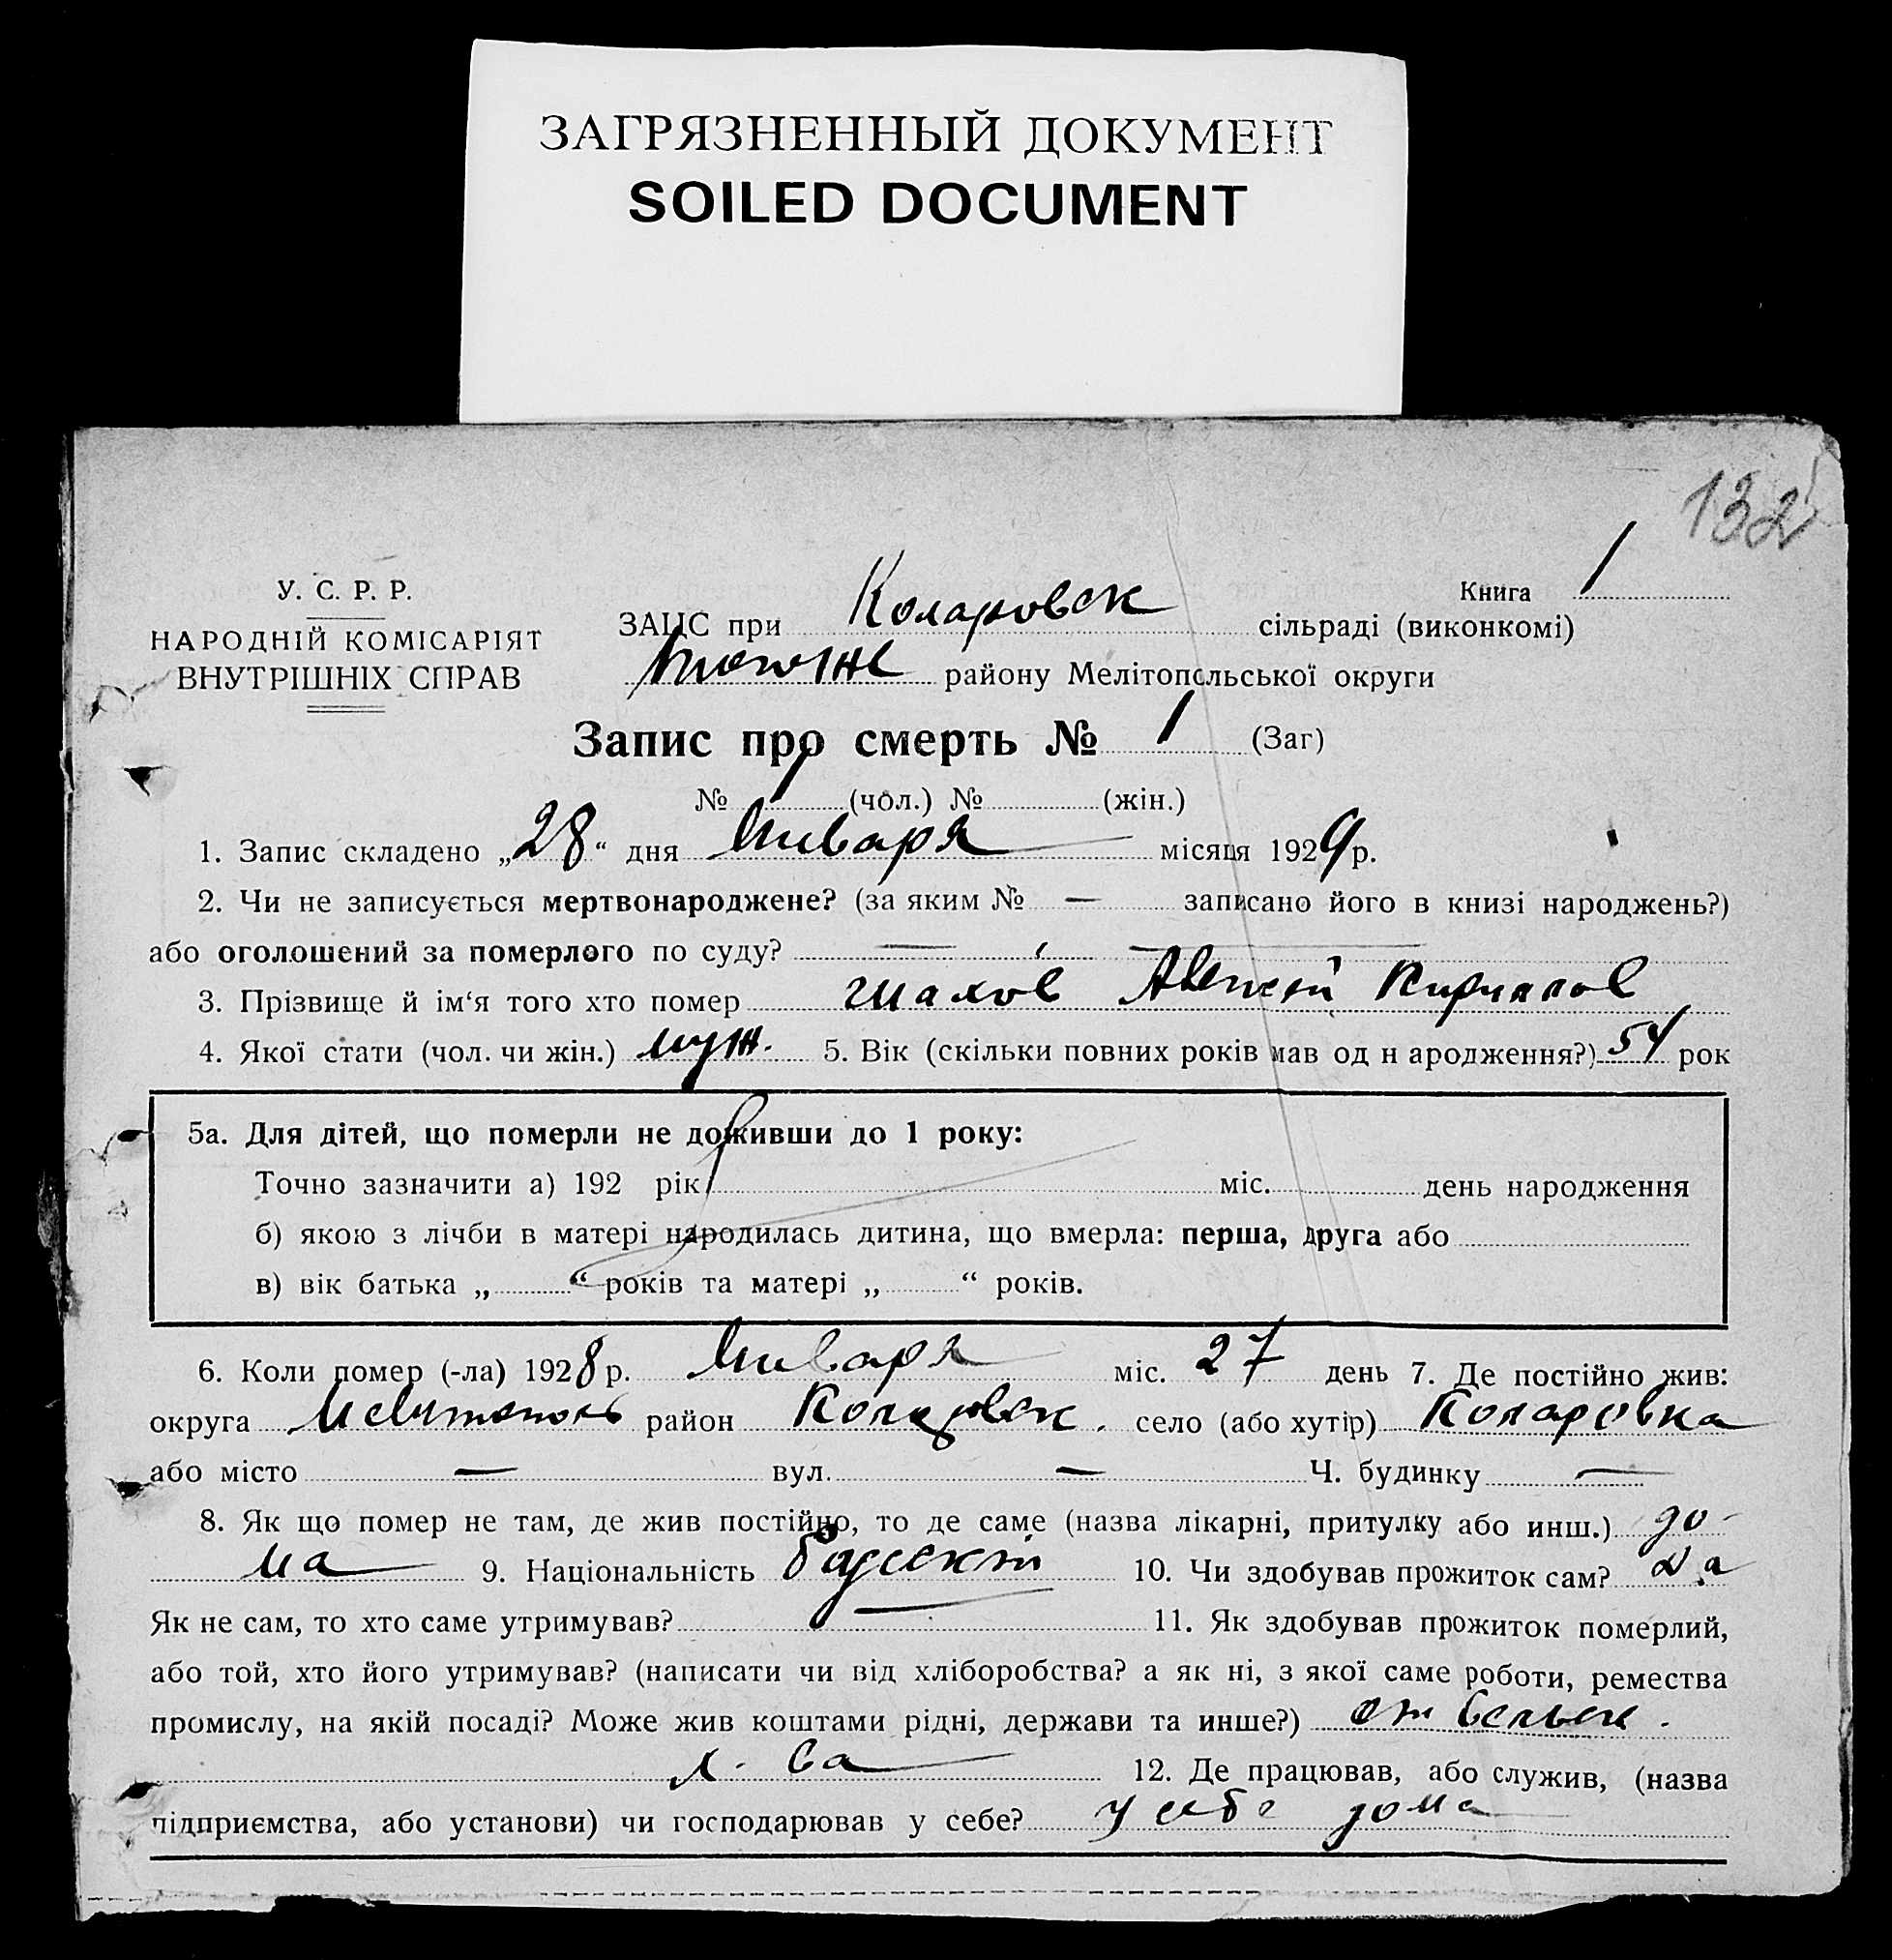 ЗАГРЯЗНЕННЫЙ ДОКУМЕНТ
SOILED DOCUMENT
132
У. С. Р. Р.
НАРОДНІЙ КОМІСАРІЯТ
ВНУТРІШНІХ СПРАВ
Книга 1
ЗАЦС при Коларовск сільраді (виконкомі)
району Мелітопольської округи
Запис про смерть № 1 (Заг)
№ 1 (чол.) № (жін.)
1. Запис складено „28“ дня Января місяця 1929 р.
2. Чи не записується мертвонароджене? (за яким № — записано його в книзі народжень?)
або оголошений за померлого по суду? — —
3. Прізвище й ім‘я того хто помер Шахов Алексей Кирилов
4. Якої стати (чол. чи жін.) муж. 5. Вік (скільки повних років мав од н ародження?) 54 рок
5а. Для дітей, що померли не доживши до 1 року:
Точно зазначити а) 192 рік міс. день народження
б) якою з лічби в матері народилась дитина, що вмерла: перша, друга або
в) вік батька „ “ років та матері „ “ років.
6. Коли помер (-ла) 1928 р. Января міс. 27 день 7. Де постійно жив:
округа Мелитополь район Коларовск. село (або хутір) Коларовка
або місто — вул. — Ч. будинку —
8. Як що помер не там, де жив постійно, то де саме (назва лікарні, притулку або инш.) до-
ма 9. Національність 10. Чи здобував прожиток сам? Да
Як не сам, то хто саме утримував? — 11. Як здобував прожиток померлий,
або той, хто його утримував? (написати чи від хліборобства? а як ні, з якої саме роботи, ремества
промислу, на якій посаді? Може жив коштами рідні, держави та инше?) от сельск.
х. ва 12. Де працював, або служив, (назва
підприємства, або установи) чи господарював у себе? у себе дома